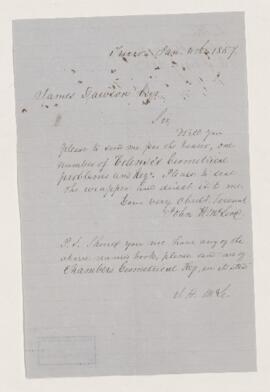 Truro Jan. 1857
James Dawson Esq
Sir
Will you
please to send me per the bearer, one
number of Colenso's Geometrical
problems and Key. Please to seal
the wrapper and direct it to me.
Your very Obedt. Servant
John H.
P.S. Should you not have any of the
above named books, please send one of
Chambers Geometrical Key, in its stead
J. H. McK.